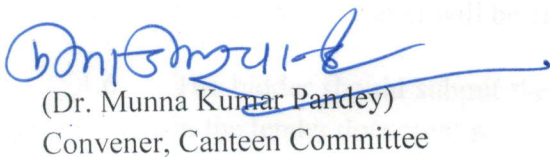 (Dr. Munna Kumar Pandey)
Convener, Canteen Committee